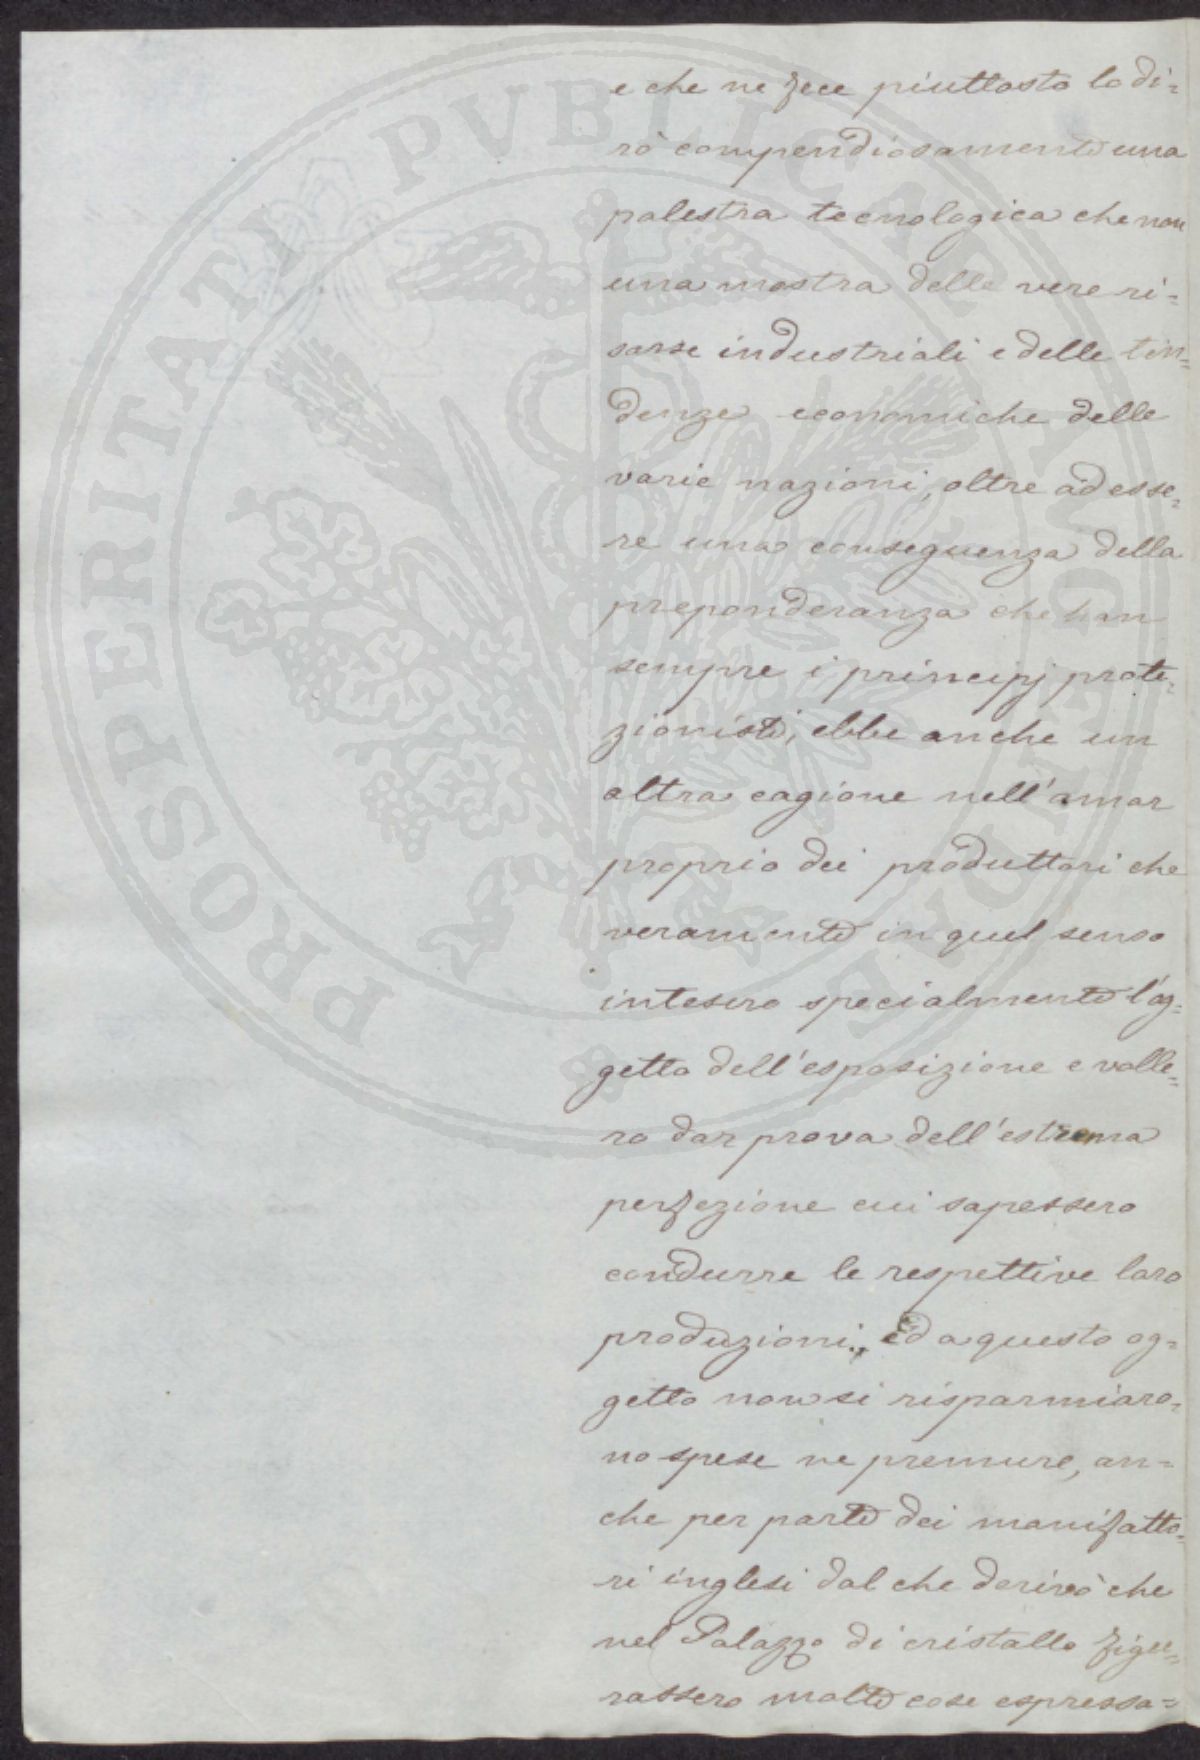 e che ne fece piuttosto lo di=
rò compendiosamente una
palestra tecnologica che non
una mostra delle vere ri=
sorse industriali e delle ten=
denze economiche delle
varie nazioni, oltre ad esse=
re una conseguenza della
preponderanza che han
sempre i principj prote=
zionisti, ebbe anche un
altra cagione nell'amor
proprio dei produttori che
veramente in quel senso
intesero specialmente l'og=
getto dell'esposizione e volle=
ro dar prova dell'estrema
perfezione cui sapessero
condurre le respettive loro
produzioni, ed a questo og=
getto non si risparmiaro=
no spese ne premure, an=
che per parte dei manifatto=
ri inglesi dal che derivò che
nel Palazzo di cristallo figu=
rassero molte cose espressa=
PROSPERITATI PVBLICAE AVGENDAE